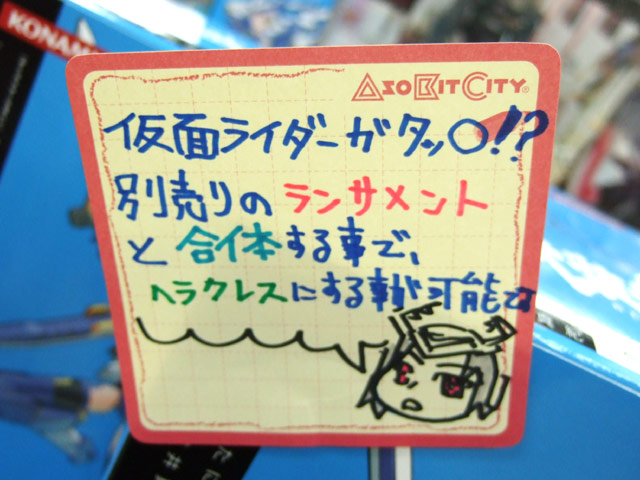 KONAMI
AsoBitCity
仮面ライダーガタッ○!?
別売りのランサメント
と合体する事で、
ヘラクレスにする事が可能な